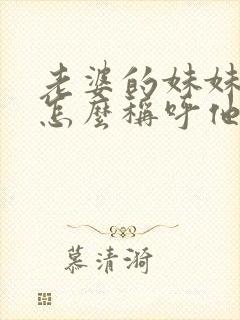 老婆的妹妹
怎麼稱呼他
慕清漪